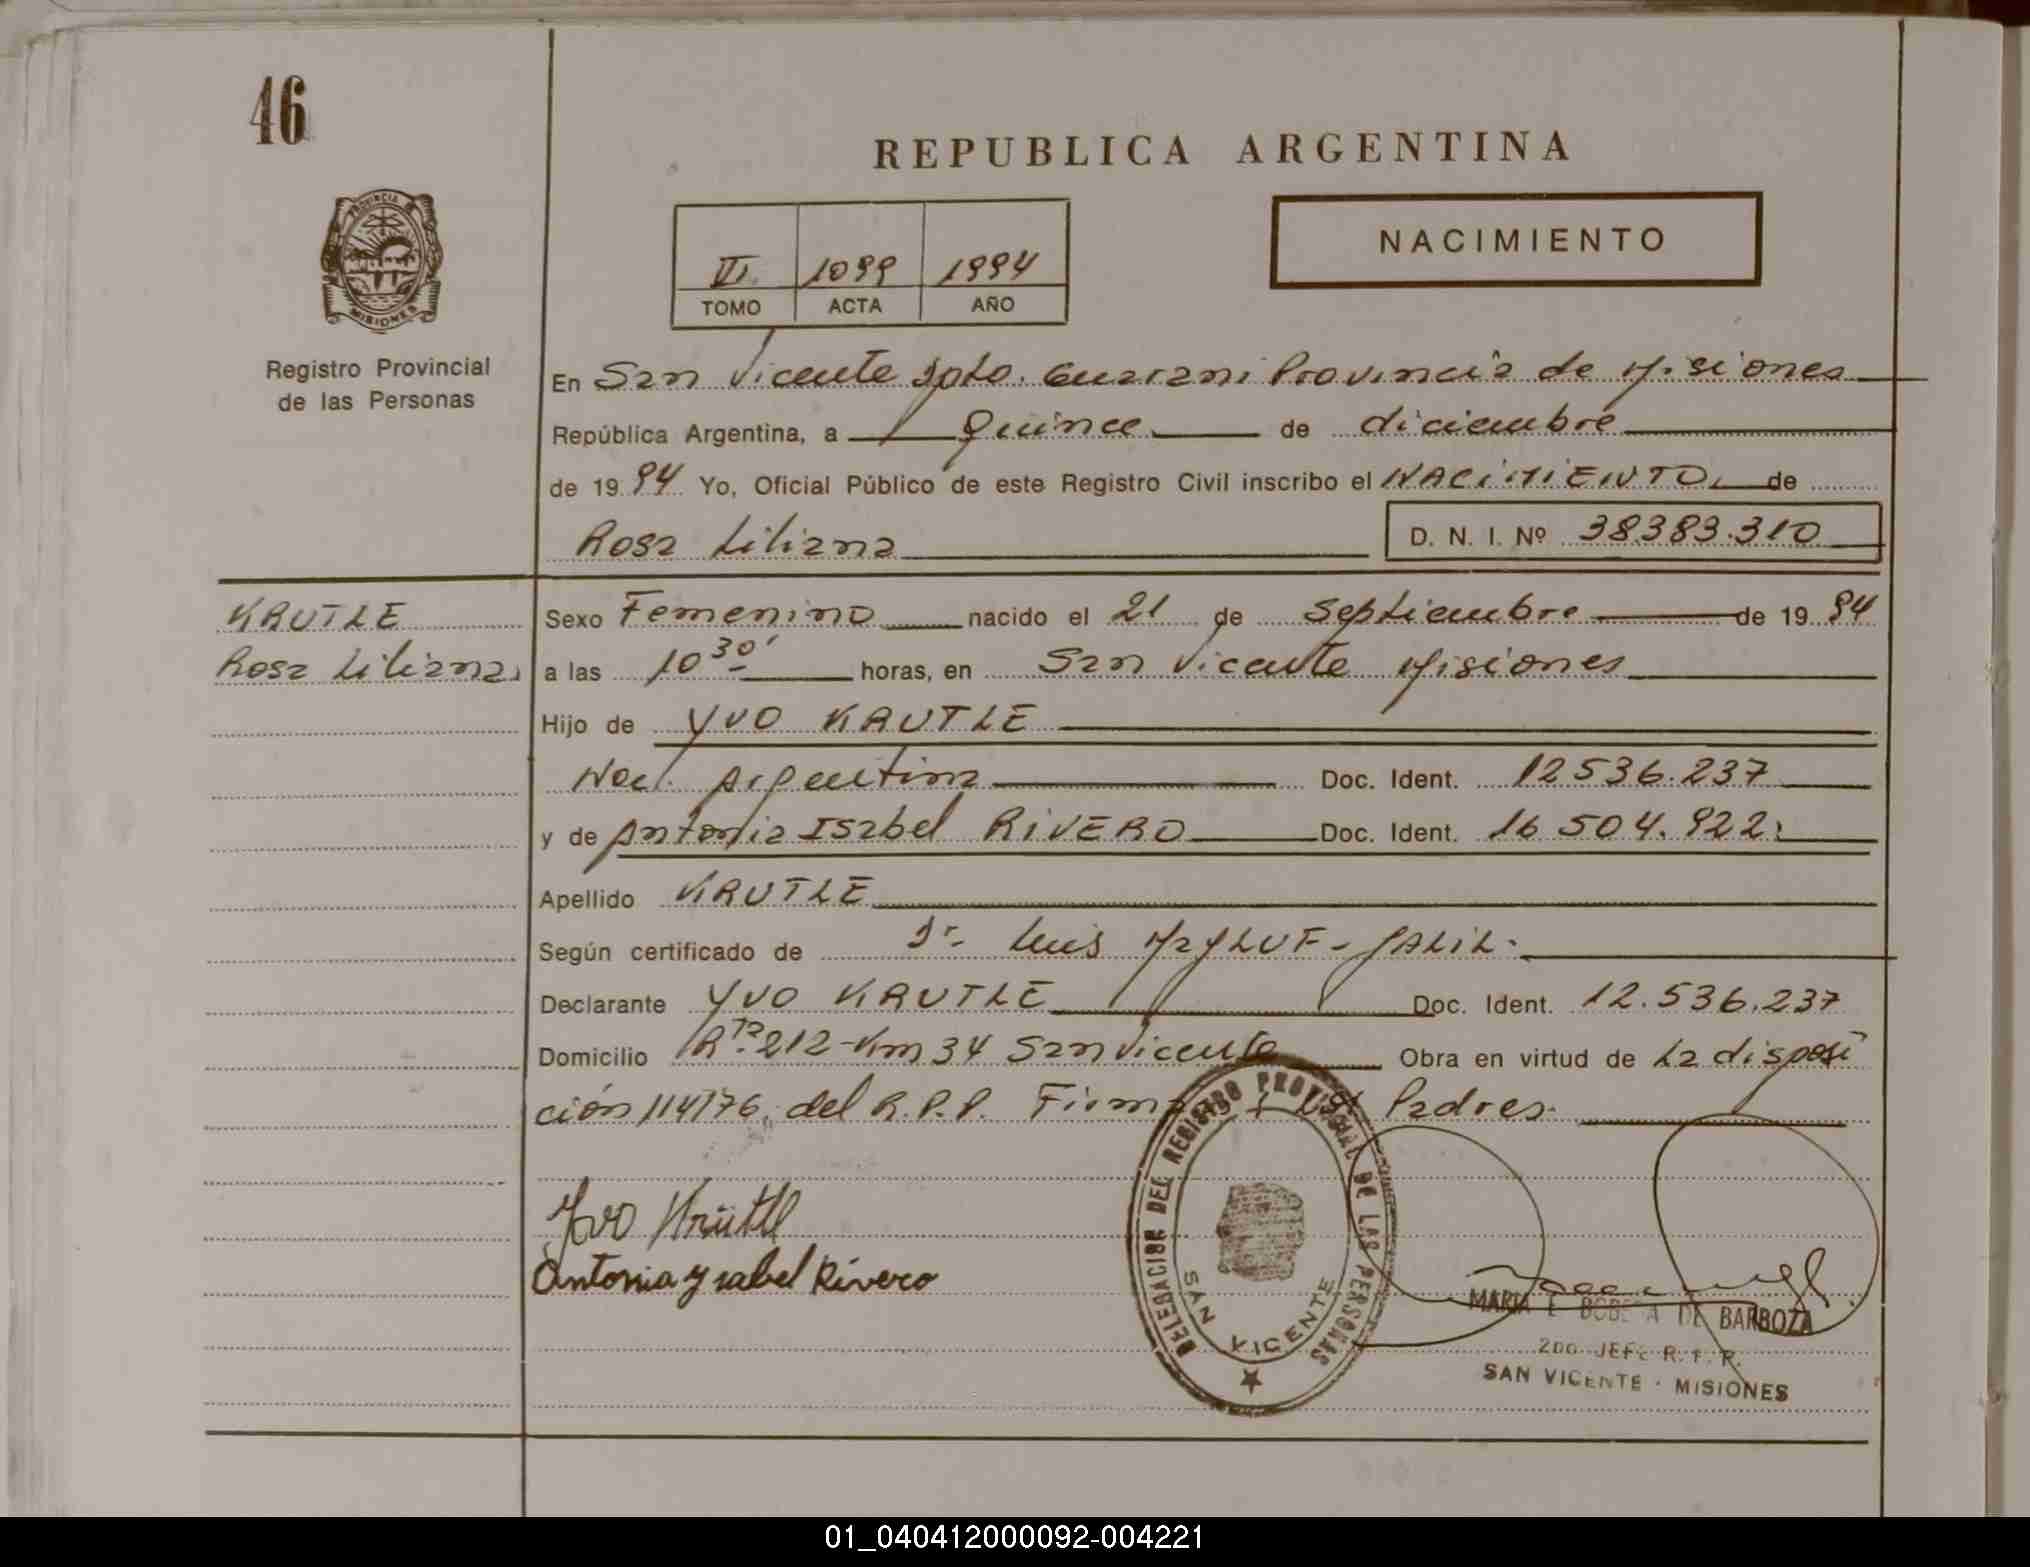 46
REPUBLICA ARGENTINA
PROVINCIA DE
MISIONES
Registro Provincial
de las Personas
VI 1099 1994
TOMO ACTA AÑO
NACIMIENTO
En San Vicente Dpto. Guarani Provincia de Misiones
República Argentina, a Quince de diciembre
de 1994 Yo, Oficial Público de este Registro Civil inscribo el NACIMIENTO, de
Rosa Liliana D. N. I. Nº 38383.310
KRUTLE
Rosa Liliana
Sexo Femenino nacido el 21 de Septiembre de 1994
a las 10 30' horas, en San Vicente Misiones
Hijo de YVO KRUTLE
Nac. Argentina Doc. Ident. 12536.237
y de Antonia Isabel RIVERO Doc. Ident. 16 504.922
Apellido KRUTLE
Según certificado de Dr. Luis JALIL.
Declarante YVO KRUTLE Doc. Ident. 12.536.237
Domicilio Rta. 212-Km 34 San Vicente Obra en virtud de La disposi
ción 114176 del R.P.P. Padres.
Yvo Krütl
Antonia Ysabel Rivero
DELEGACION DEL REGISTRO PROVINCIAL DE LAS PERSONAS
SAN VICENTE
MARIA E DE BARBOZA
2DO JEFE R. P. P.
SAN VICENTE - MISIONES
01_040412000092-004221